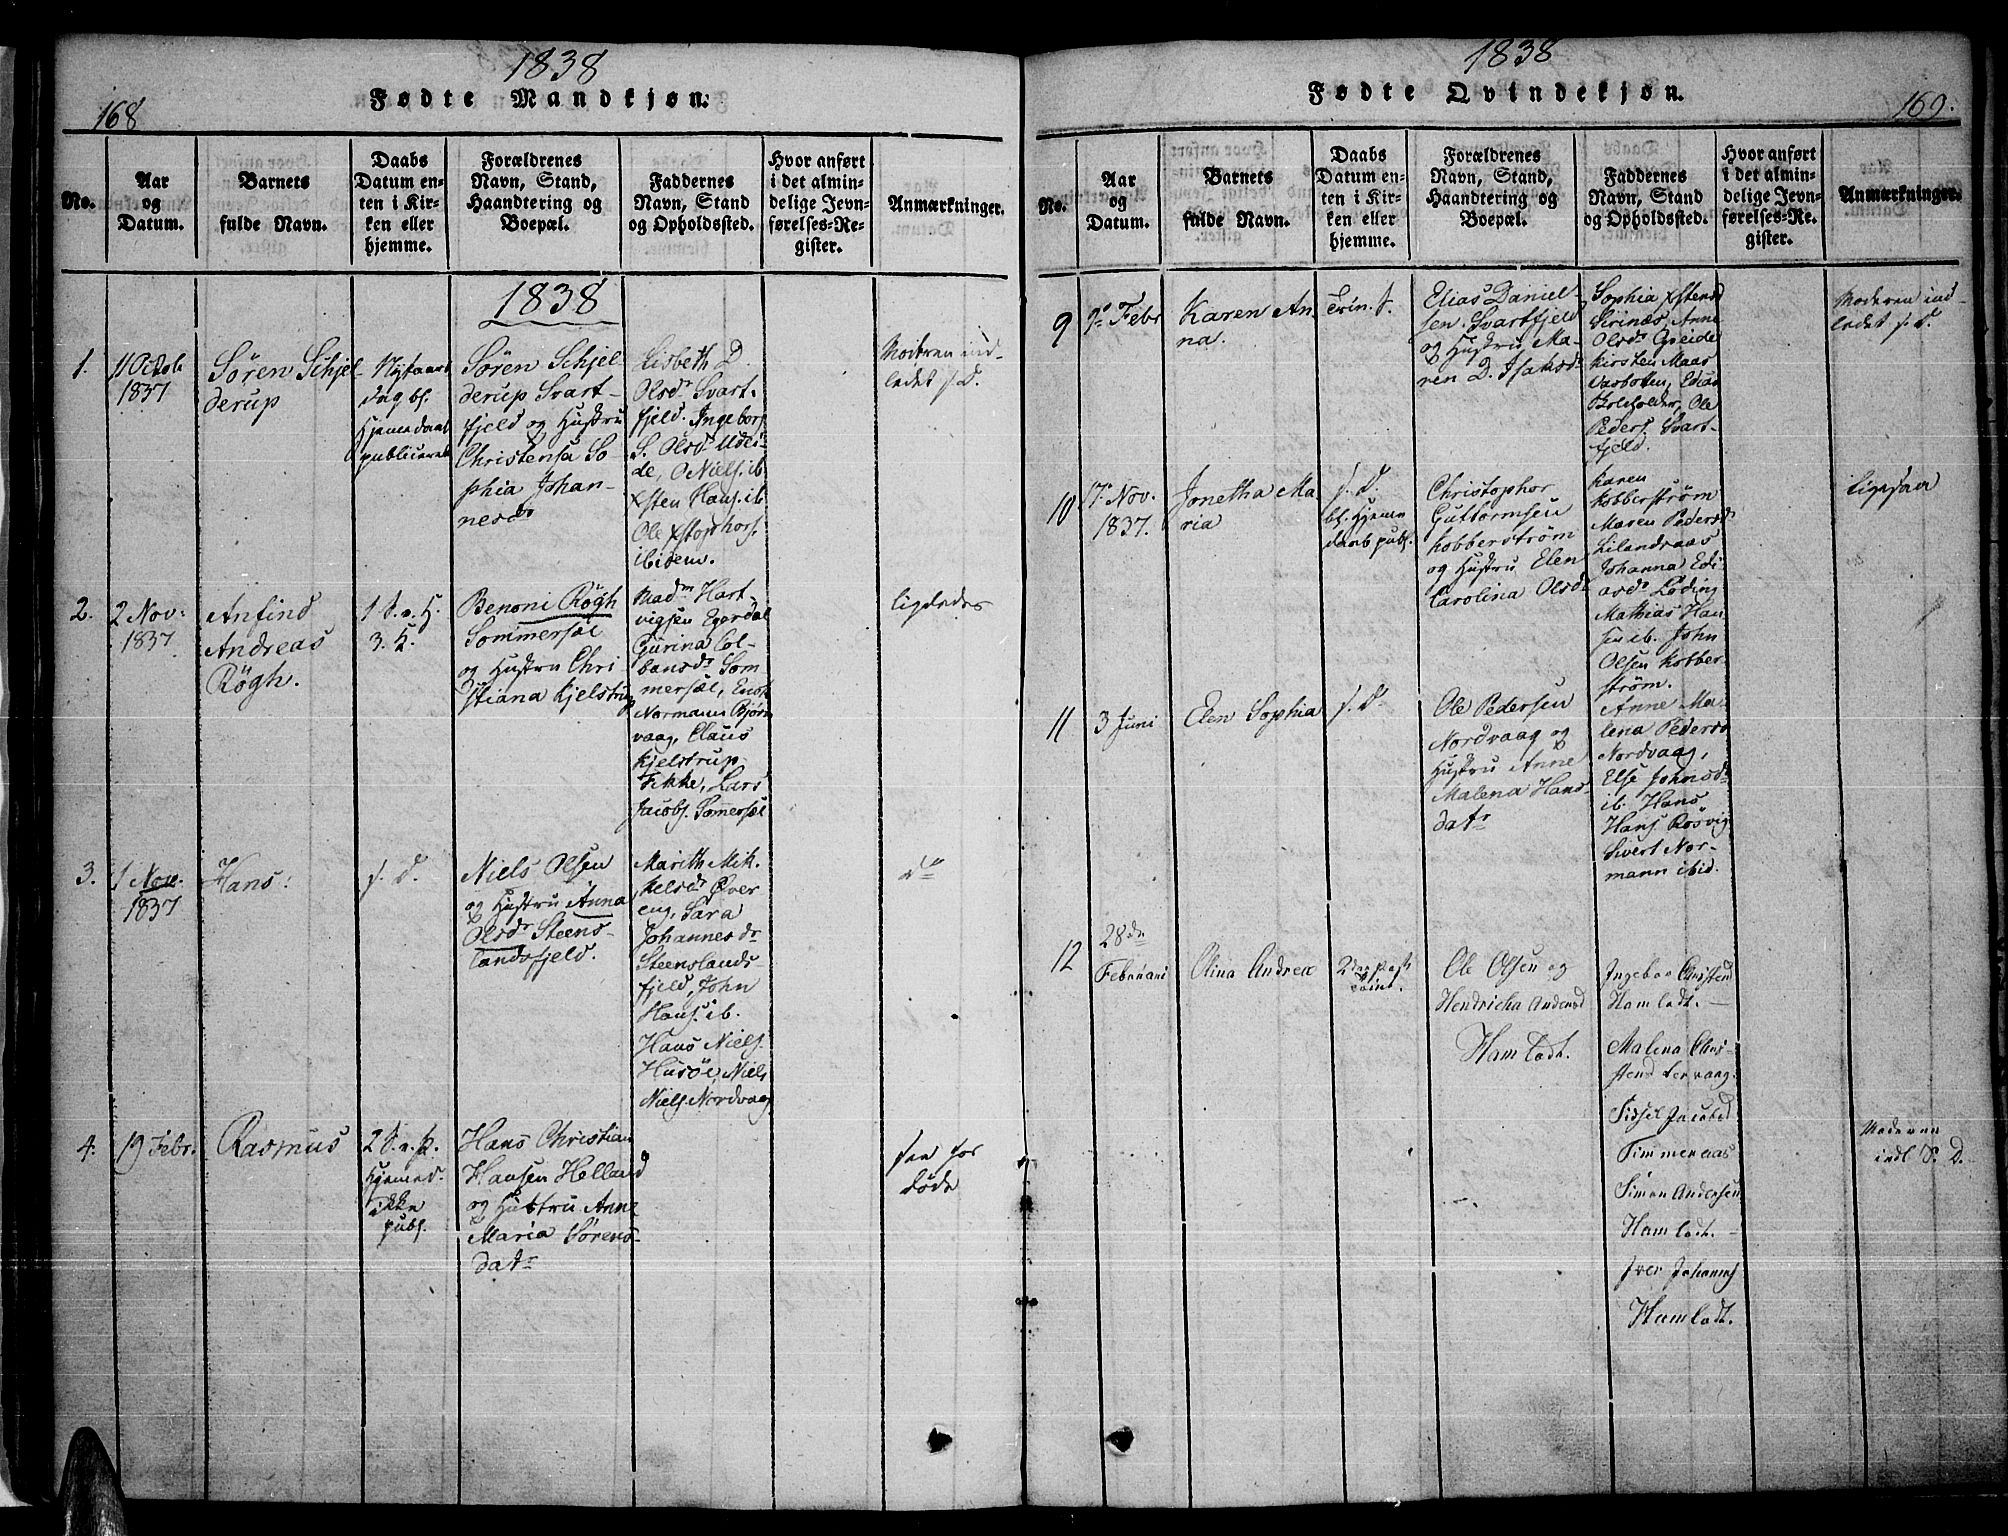 1838
Fødte Mandkjøn.
168
No.
Aar
og
Datum.
Barnets
fulde Navn.
Daabs
Datum en-
ten i Kir-
ken eller
hjemme.
Forældrenes
Navn, Stand,
Haandtering og
Boepæl.
Faddernes
Navn, Stand
og Opholdssted.
Hvor anført
i det almin-
delige Jevn-
førelses-Re-
gister.
Anmærkninger.
1838
1.
11 Octob
1837
Søren Schjel-
derup
Nytaars
dag bl.
Hjemedaab
publiceret
Søren Schjel-
derup Svart-
fjeld og Hustru
Christensa So
phia Johan-
nesdr
Lisbeth D.
Olsdr Svart-
fjeld. Ingeborg
S. Olsdr Udei-
de, O Niels. ib
Xsten Hans. ib
Ole Xstophers.
ibidem.
Moderen ind-
ledet s. D.
2.
2 Nov:
1837
Anfind
Andreas
Røgh.
1 S. e. H.
3. K.
Benoni Røgh
Sommersæl
og Hustru Chri
stiana Kjelstrup
Madm Hart-
vigsen Egerdal
Gurina Col-
bansdr Som
mersæl, Enok
Normann Bjørn
vaag, Claus
Kjelstrup
Fikke, Lars
Jacobs. Somersæl
ligeledes
3.
1 Nov.
1837
Hans.
s. D.
Niels Olsen
og Hustru Anna
Olsdr Steens-
landsfjeld.
Marith Mik-
kelsdr Øver
eng, Sara
Johannesdr
Steenslands-
fjeld, John
Hans. ib.
Hans Niels.
Husøe, Niels
Niels. Nordvaag
do
4.
19 Febr.
Rasmus
2 S. e. P.
Hjemed.
ikke
publ.
Hans Christian
Hansen Helland
og Hustru Anne
Maria Sørens-
datr
før
døde
1838
Fødte Qvindekjøn.
169.
No.
Aar
og
Datum.
Barnets
fulde Navn.
Daabs
Datum en-
ten i Kir-
ken eller
hjemme.
Forældrenes
Navn, Stand,
Haandtering og
Boepæl.
Faddernes
Navn, Stand
og Opholdssted.
Hvor anført
i det almin-
delige Jevn-
førelses-Re-
gister.
Anmærkninger.
9
9de Febr
Karen An
na.
Trin. S.
Elias Daniel
sen Svartfjeld
og Hustru Ma-
ren D. Isaksdr
Sophia Xstensd
Sirinæs, Anne
Olsdr Gjeide
Kirsten Maas
Ole
Peders. Svart-
fjeld.
Moderen ind-
ledet s. D.
10
17. Nov.
1837.
Jonetha Ma-
ria
s. D.
bl. Hjemme
daab publ.
Christopher
Guttormsen
Kobberstrøm
og Hustru Elen
Carolina Olsdr
Karen
Kobberstrøm
Maren Pedersdr
Lilandsaas
Johanna Edi-
asdr Løding
Mathias Han
sen ib. John
Olsen Kobber-
strøm.
ligesaa
11
3 Juni
Elen Sophia
s. D.
Ole Pedersen
Nordvaag og
Hustru Anne
Malena Hans-
datr
Anne Ma-
lena Pedersdr
Nordvaag,
Else Johnsdr
ib. Hans
Hans. Rosvig
Sivert Nor-
mann ibid.
12
28de
Februari
Olina Andrea
Ole Olsen og
Hendricha Andersd
Hamlodt.
Ingebor Christend
Hamlodt. —
Malena Chris-
stensd Lervaag.
Sidsel Jacobsd
Timmenaas
Simon Andersen
Hamlodt. —
Iver Johanns
Hamlodt.
Moderen
indl S. D.